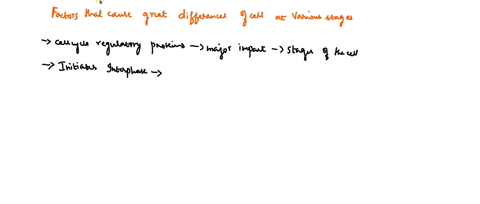 Factors that cause great differences of cell at various stages
→ cell cycle regulatory proteins → major impact → stages of the cell
→ Initiates Interphase →